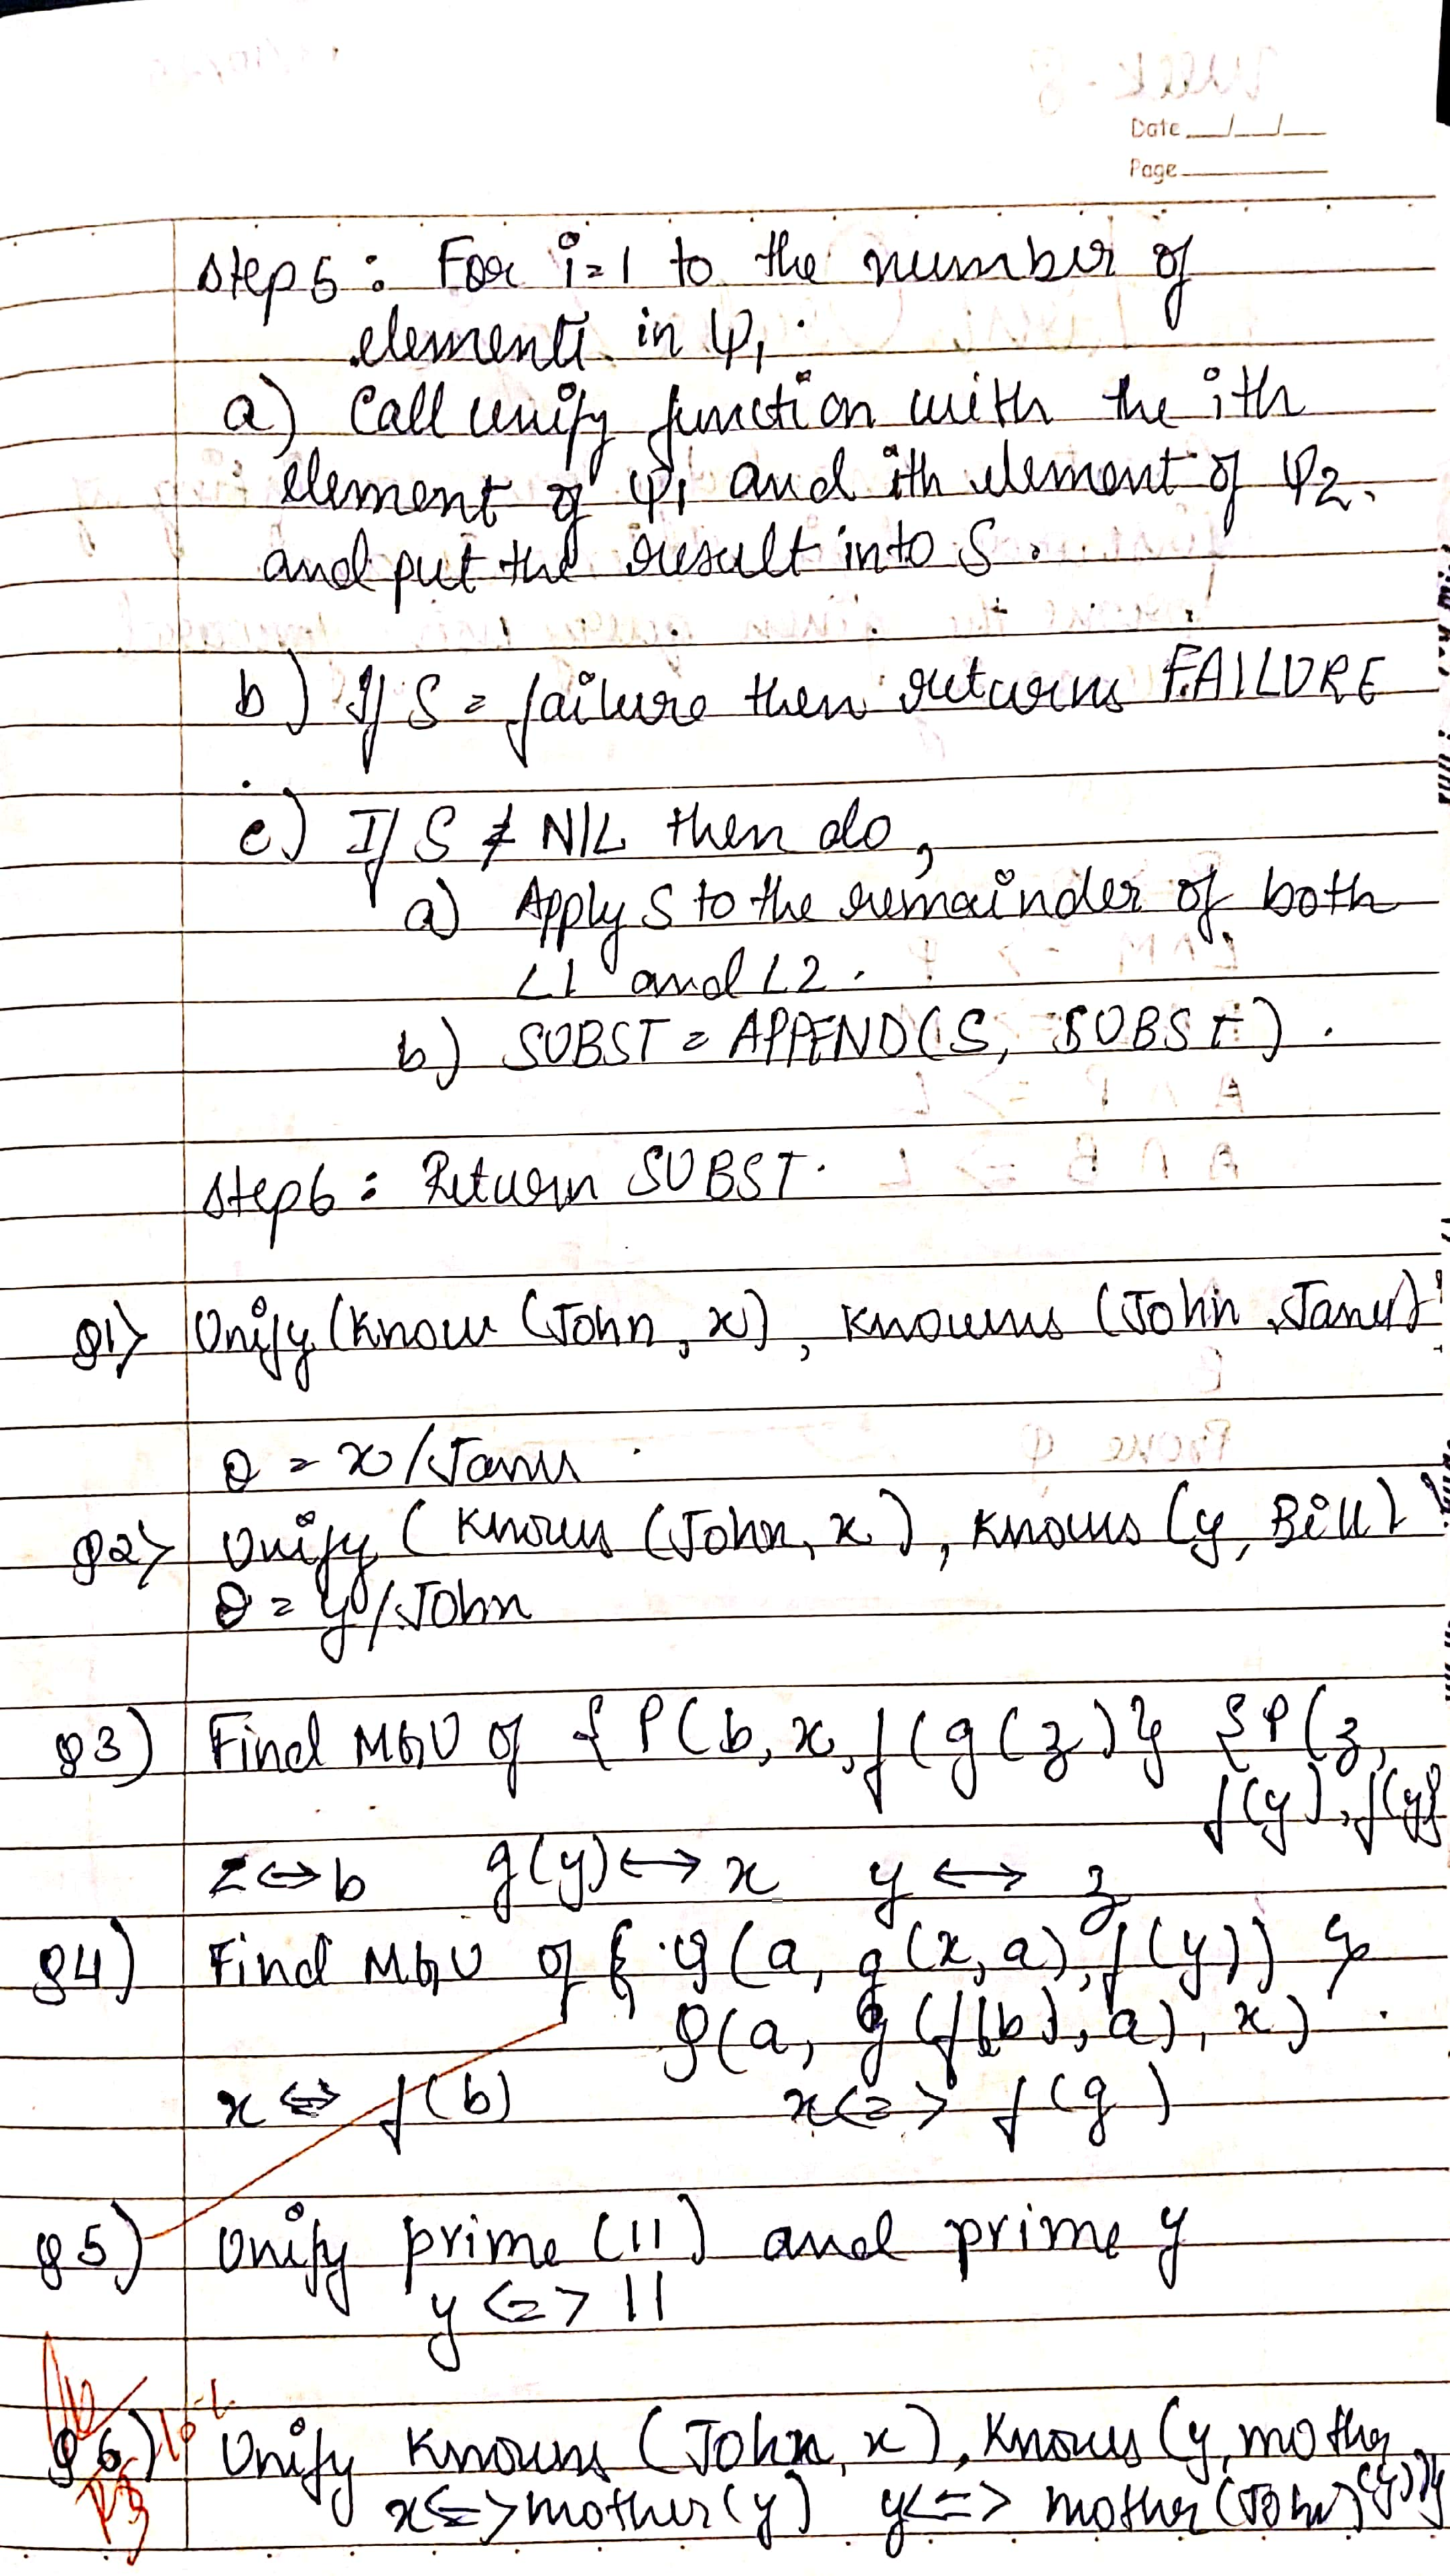 Date
Page
Step 5 : For i=1 to the number of
elements in Ψ1 :
a) Call unify function with the ith
element of Ψ1 and ith element of Ψ2.
and put the result into S.
b) If S = failure then returns FAILURE
c) If S ≠ NIL then do,
a) Apply S to the remainder of both
L1 and L2.
b) SUBST = APPEND(S, SUBST).
Step 6 : Return SUBST.
Q1) Unify (Know (John, x), Knowns (John, Jane)
θ = x / Jane
Q2) Unify (Knows (John, x), Knows (y, Bill)
θ = y / John
Q3) Find MGU of { P(b, x, f(g(z)} {P(z,
f(y), f(y)}
z ⇔ b g(y) ↔ x y ↔ z
Q4) Find MGU of { Q(a, g(x, a), f(y)) &
Q(a, g(f(b), a), x)
x ⇔ f(b) x <=> f(g)
Q5) Unify prime (11) and prime y
y <=> 11
Q6) Unify Knowns (John, x), Knows (y, mother
(y))}
x <=> mother(y) y <=> mother (John)